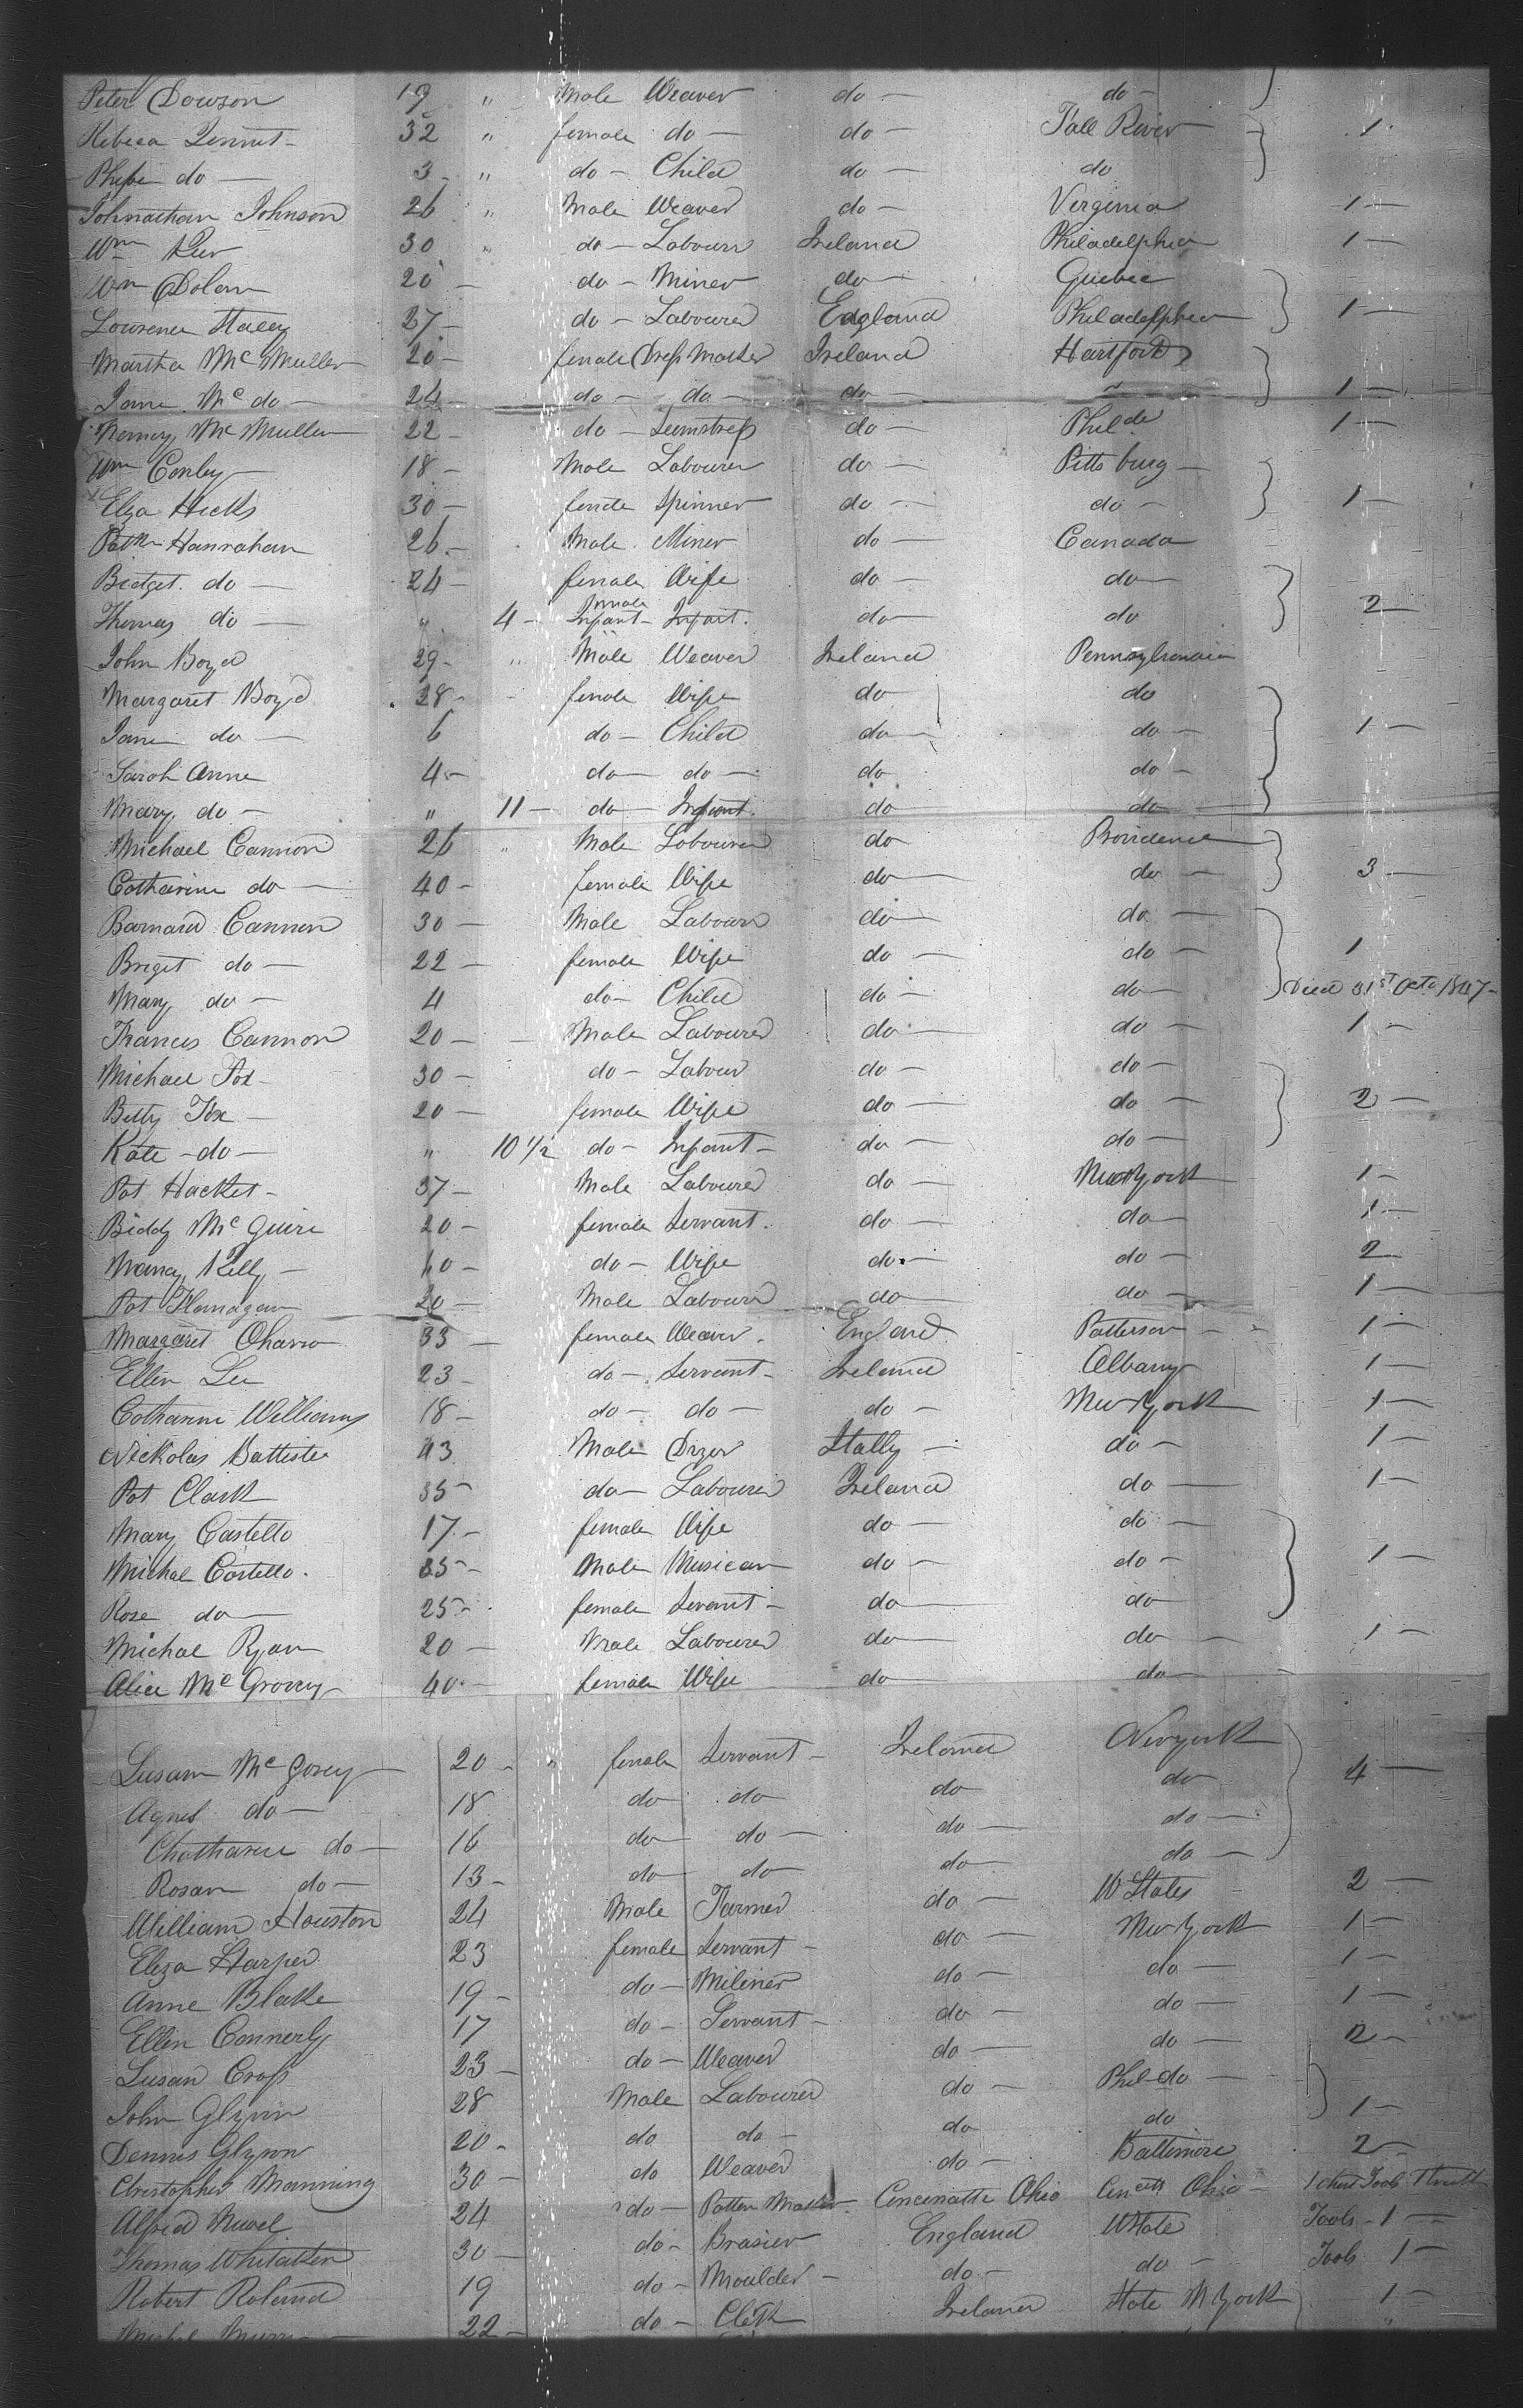 Peter Dowson 19 " Male Weaver do — do —
Rebeca Pennit — 32 " female do — do — Fall River 1
Phebe do — 3 — " do — Child do — do
Johnathan Johnson 26 " Male Weaver do — Virginia 1 —
Wm 30 " do — Labourr Ireland Philadelphia 1 —
Wm Dolan 20 — do — Miner do — Quebec
Lowrence Haley 27 — do — Labourer England Philadelphia 1 —
Martha Mc Mullen 20 — female Dress Maker Ireland Hartford
Jane Mc do — 24 — do — do — do — 1 —
Nancy Mc Mullen 22 — do — Seemstress do — Philde 1 —
Wm Conley — 18 — Male Labourer do — Pitts burg —
Elza Hicks 30 — female Spinner do — do — 1 —
Patk Hanrahan 26 — Male Miner do — Canada
Bridget do — 24 — female Wife do — do —
Thomas do — " 4 — Infant — Infant. do — do 2 —
John Boyd 29 — " Male Weaver Ireland Pennsylvania
Margaret Boyd 28 — female Wife do do
Jane do — 6 do — Child do — do — 1 —
Sarah Anne 4 — do — do — do do —
Mary do — " 11 — do — Infant. do do
Michael Cannon 26 " Male Labourer do Providence
Catharine do — 40 — female Wife do — do — 3 —
Barnard Cannon 30 — Male Labourr do — do —
Briget do — 22 — female Wife do — do — 1
Mary do — 4 do — Child do — do — Died 31st Octo 1847 —
Francis Cannon 20 — Male Labourer do — do — 1 —
Michael Fox — 30 — do — Labour do — do —
Betty Fox — 20 — female Wife do — do — 2 —
Kate — do — " 10 1/2 do — Infant — do — do —
Pat Hacket — 37 — Male Labourer do — New York 1 —
Biddy Mc Guire 20 — female Servant. do — do — 1 —
Nancy Kelly — 40 — do — Wife do — do — 2
Pat Flanagan 20 — Male Labourer do — do — 1 —
Margaret 33 — female Weaver. England Patterson — 1 —
Ellen Lee 23 — do — Servant — Ireland Albany 1 —
Catharine Williams 18 — do — do — do — New York 1 —
Nickolas Battiste 43 Male Itally — do — 1 —
Pat Clark 35 — do — Labourer Ireland do — 1 —
Mary Castello 17 — female Wife do — do —
Michal Costello. 35 — Male Musican do — do — 1 —
Rose do — 25 — female Servant — do — do
Michal Ryan 20 — Male Labourer do — do — 1 —
Alice Mc Grovey 40 — female Wife do — do —
Susan Mc Govey — 20 — " female Servant — Ireland New york 4 —
Agnes do — 18 do do do do
Chatharine do — 16 do do — do — do —
Rosan do — 13 — do do do — do —
William Houston 24 Male Farmer do — W States 2 —
Eliza Harper 23 female Servant — do — New York 1 —
Anne Blake 19 — do — Miliner do — do — 1 —
Ellen Connerly 17 do — Servant — do — do — 1 —
Susan Cross 23 — do — Weaver do — do — 2 —
John Glynn 28 Male Labourer do — Phil do —
Dennis Glynn 20 — do do — do do 1 —
Christopher Manning 30 — do Weaver do — Baltimore 2 —
Alfred Nuvel 24 do — Patten Maker Cincinatte Ohio Cinatti Ohio — 1 chest Tools
Thomas Whitaker 30 — do — Brasier England Tools — 1 —
Robert Roland 19 do — Moulder — do — do — Tools 1 —
22 — do — Clerk Ireland State N York 1 —